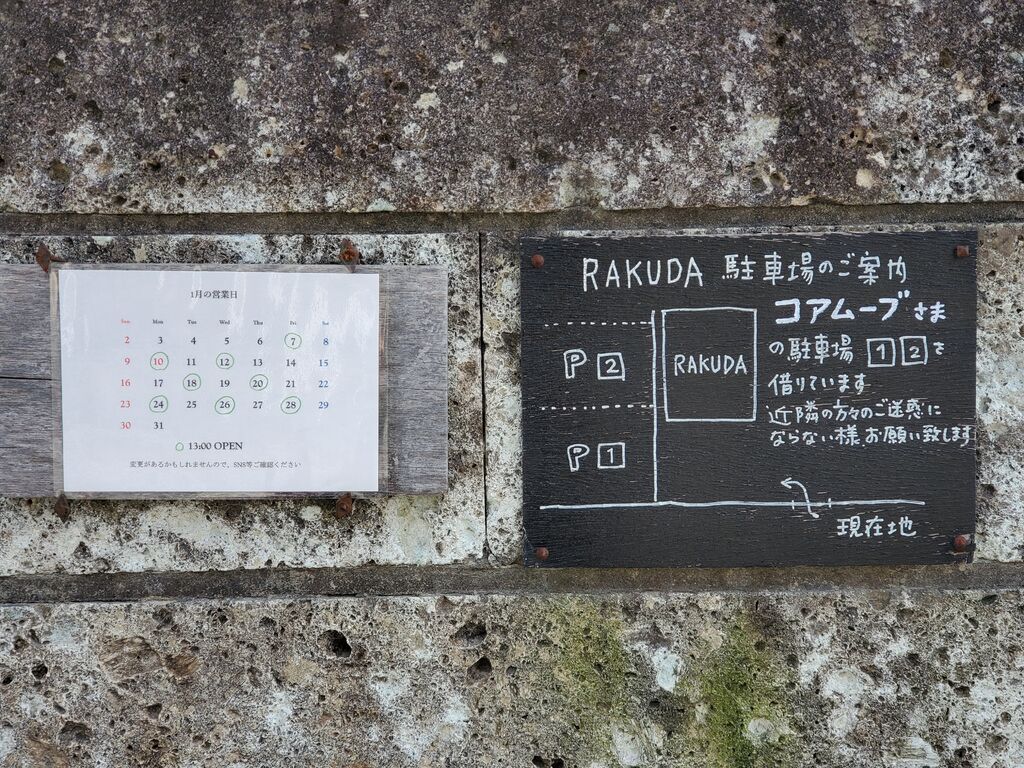 1月の営業日
Sun Mon Tue Wed Thu Fri Sat
2 3 4 5 6 7 8
9 10 11 12 13 14 15
16 17 18 19 20 21 22
23 24 25 26 27 28 29
30 31
13:00 OPEN
変更があるかもしれませんので、SNS等ご確認ください
RAKUDA 駐車場のご案内
コアムーブさま
の駐車場 1 2 を
借りています
近隣の方々のご迷惑に
ならない様、お願い致します
RAKUDA
P 2
P 1
現在地